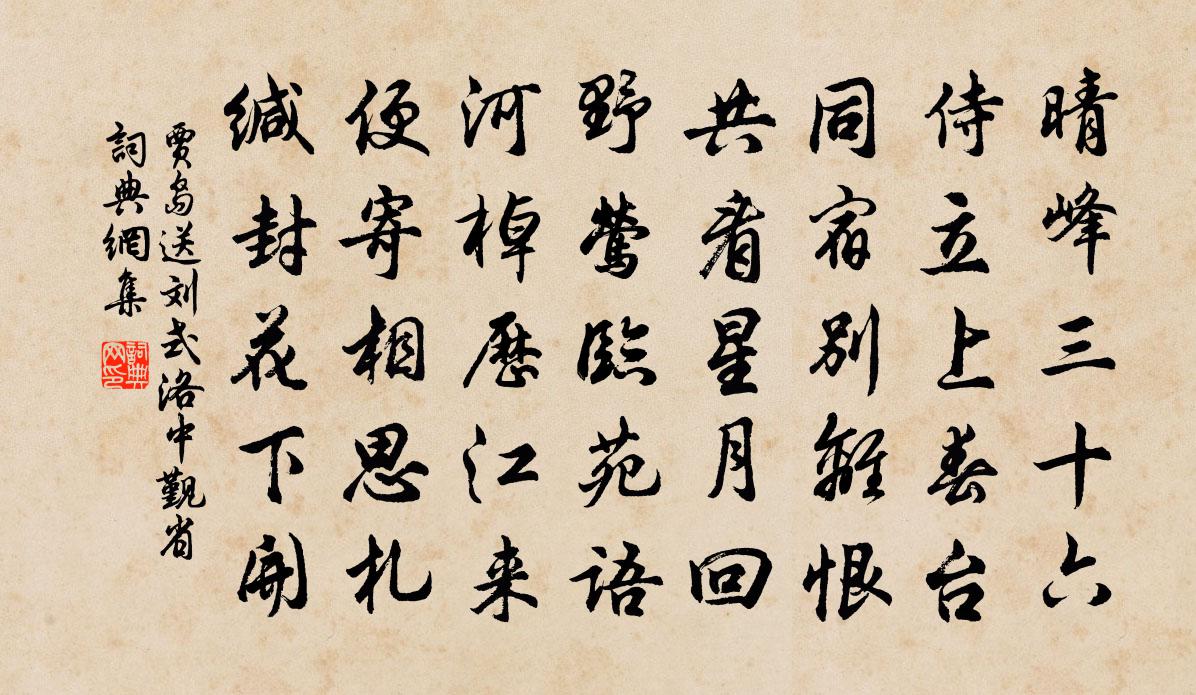 晴峰三十六
侍立上春台
同宿别離恨
共看星月回
野鶯臨苑語
河棹歷江来
便寄相思札
缄封花下開
賈島送刘式洛中覲省
詞典網集
詞典網印